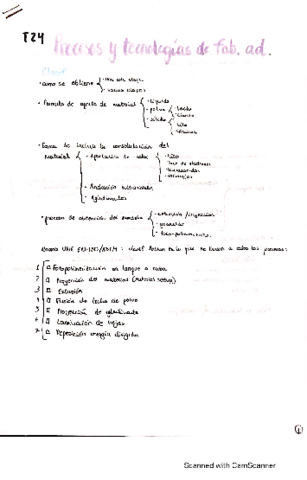 T24 Procesos y tecnologías de fab. ad.
Clasif
· como se obtiene
una sola etapa
varias etapas
· formato de aporte de material
líquido
polvo
sólido
lecho
hilo
láminas
· forma de inducir la consolidación del
material
Aportación de calor
láser
haz de electrones
Radiación ultravioleta
Aglutinantes
· proceso de obtención del
extrusión / inyección
Norma UNE EN-ISO/ASTM : clasif. basan en lo que se llevan a cabo los procesos:
1 Fotopolimerización en tanque o cuba
2 Proyección del material (material jetting)
3 Extrusión
4 Fusión de lecho de polvo
5 Proyección de aglutinante
6 Laminación de hojas
7 Deposición energía dirigida
1
Scanned with CamScanner